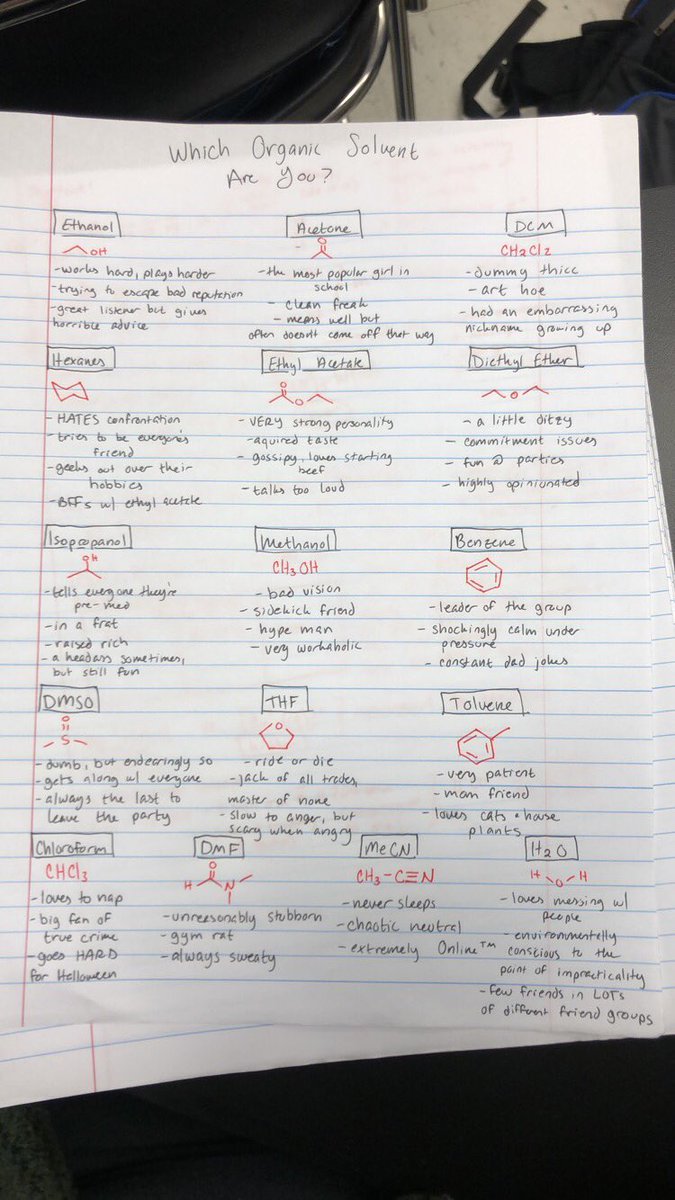 Which Organic Solvent
Are You?
Ethanol
OH
-works hard, plays harder
-trying to escape bad reputation
-great listener but gives
horrible advice
Acetone
O
-the most popular girl in
school
- clean freak
- means well but
often doesn't come off that way
DCM
CH2Cl2
-dummy thicc
- art hoe
- had an embarrassing
nickname growing up
Hexanes
- HATES confrontation
-tries to be everyone's
friend
-geeks out over their
hobbies
-BFFs w/ ethyl acetate
Ethyl Acetate
O
O
- VERY strong personality
-aquired taste
- gossipy, loves starting
beef
- talks too loud
Diethyl Ether
O
- a little ditzy
- commitment issues
- fun @ parties
- highly opiniunated
Isopropanol
OH
-tells everyone they're
pre-med
-in a frat
-raised rich
-a headass sometimes,
but still fun
Methanol
CH3OH
- bad vision
- sidekick friend
- hype man
- very workaholic
Benzene
-leader of the group
- shockingly calm under
pressure
- constant dad jokes
DMSO
O
S
-dumb, but endearingly so
-gets along w/ everyone
-always the last to
leave the party
THF
O
-ride or die
-jack of all trades,
master of none
- slow to anger, but
scary when angry
Toluene
-very patient
- mom friend
- loves cats + house
plants
Chloroform
CHCl3
-loves to nap
-big fan of
true crime
-goes HARD
for Halloween
DMF
O
H
N
-unreasonably stubborn
-gym rat
-always sweaty
MeCN
CH3-C≡N
-never sleeps
-chaotic neutral
-extremely Online™
H2O
H O H
- loves messing w/
people
-environmentally
conscious to the
point of impracticality
-few friends in LOTS
of different friend groups